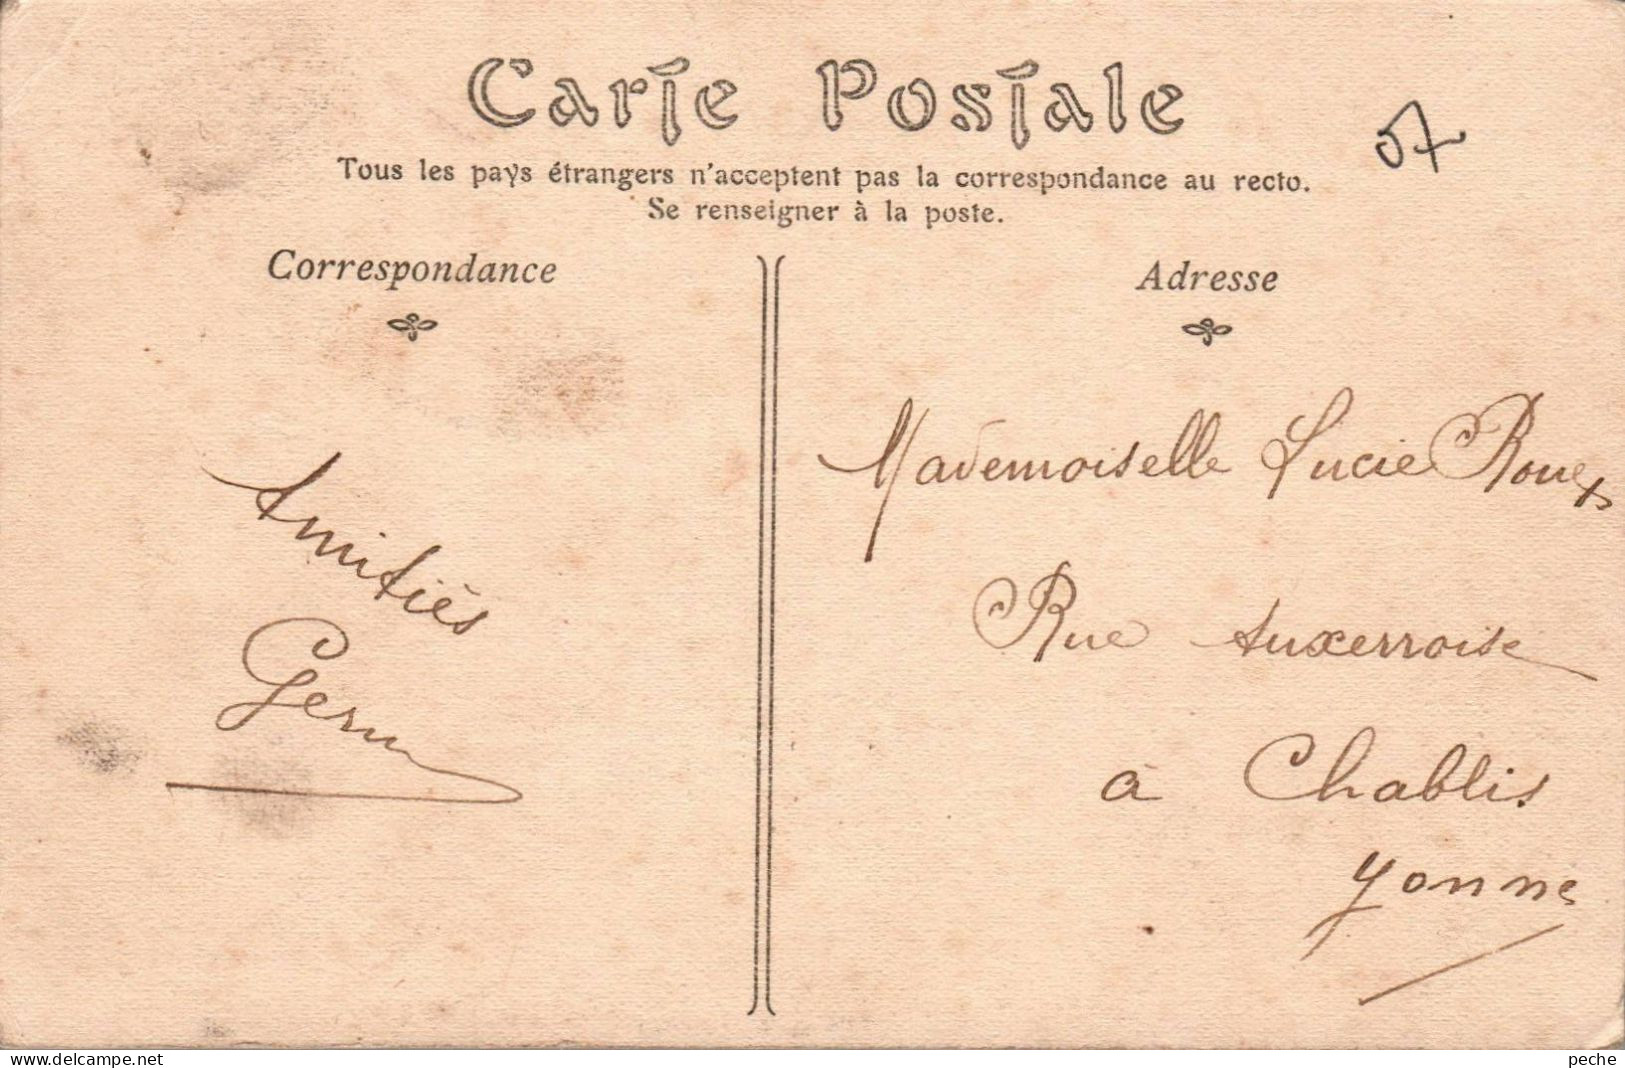 Carte Postale
57
Tous les pays étrangers n'acceptent pas la correspondance au recto.
Se renseigner à la poste.
Correspondance
Amitiés
Adresse
Mademoiselle Lucie Roux
Rue Auxerroise
à Chablis
Yonne
www.delcampe.net
peche